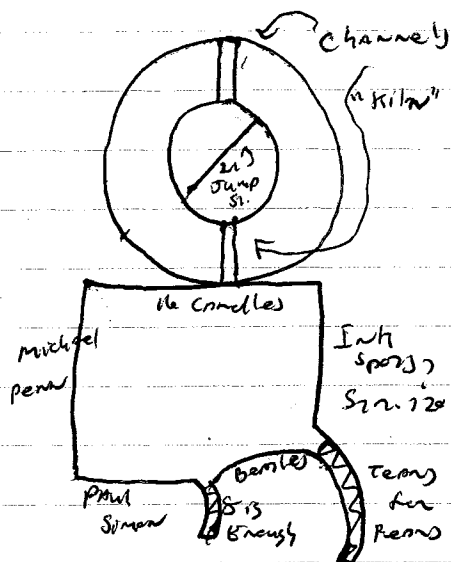 Channels
"Kiln"
21
Jump
St.
the Connells
Michael
Penn
Ink
Spots
Beatles
Paul
Simon
Big
Enough
Tears
for
Fears